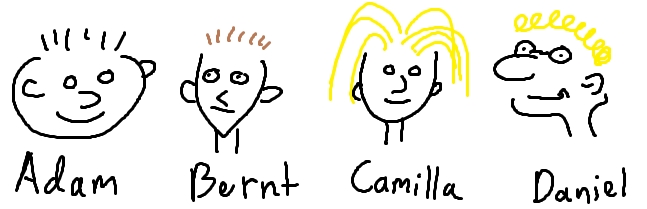 Adam Bernt Camilla Daniel